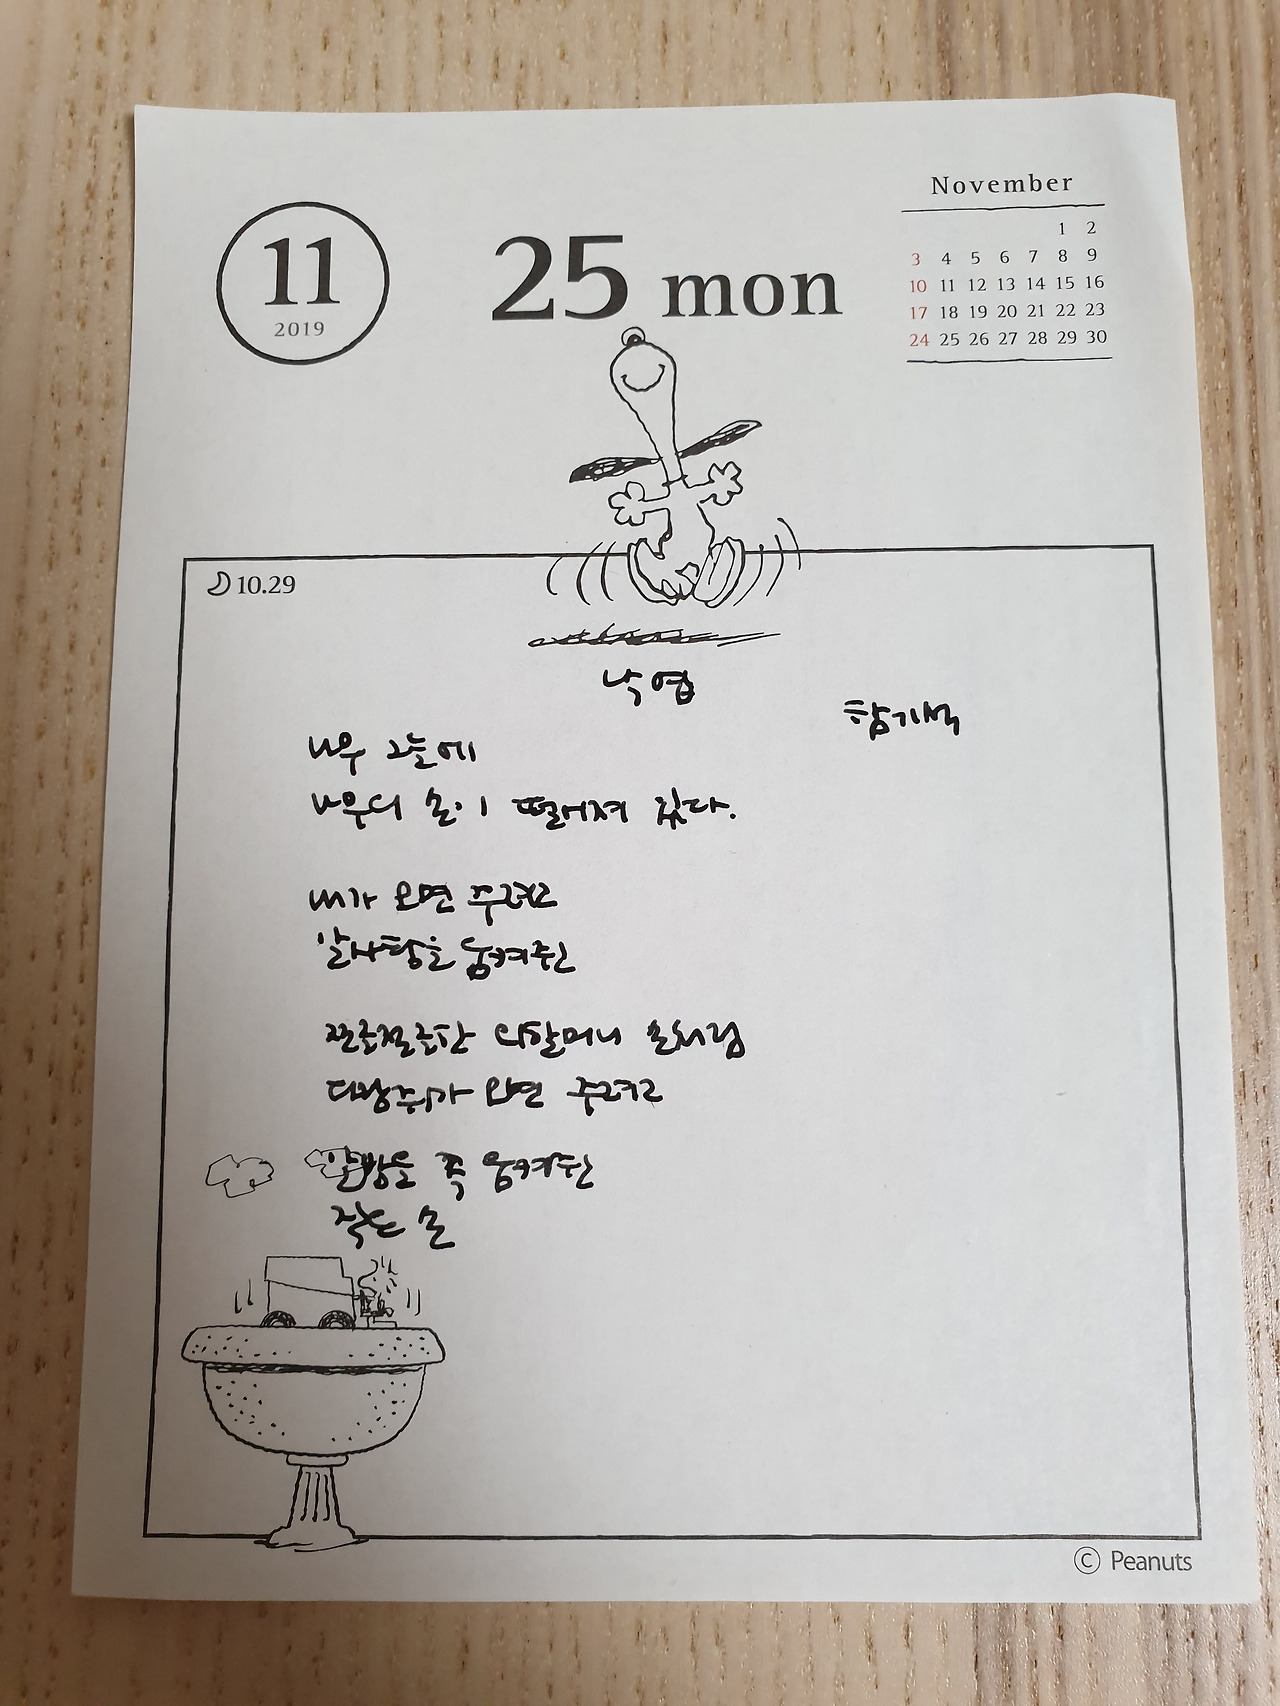 11
2019
25 mon
November
1 2
3 4 5 6 7 8 9
10 11 12 13 14 15 16
17 18 19 20 21 22 23
24 25 26 27 28 29 30
10.29
낙엽
함기석
나무 그늘에
나무의 손이 떨어져 있다.
내가 오면 주려고
알사탕을 움켜쥔
외할머니 손처럼
다람쥐가 오면 주려고
알밤을 꼭 움켜쥔
작은 손
© Peanuts